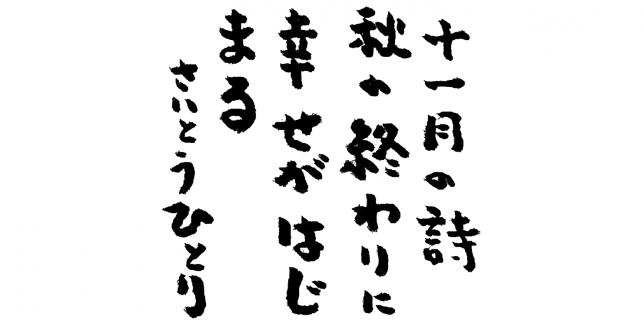 十一月の詩
秋の終わりに
幸せがはじ
まる
さいとうひとり